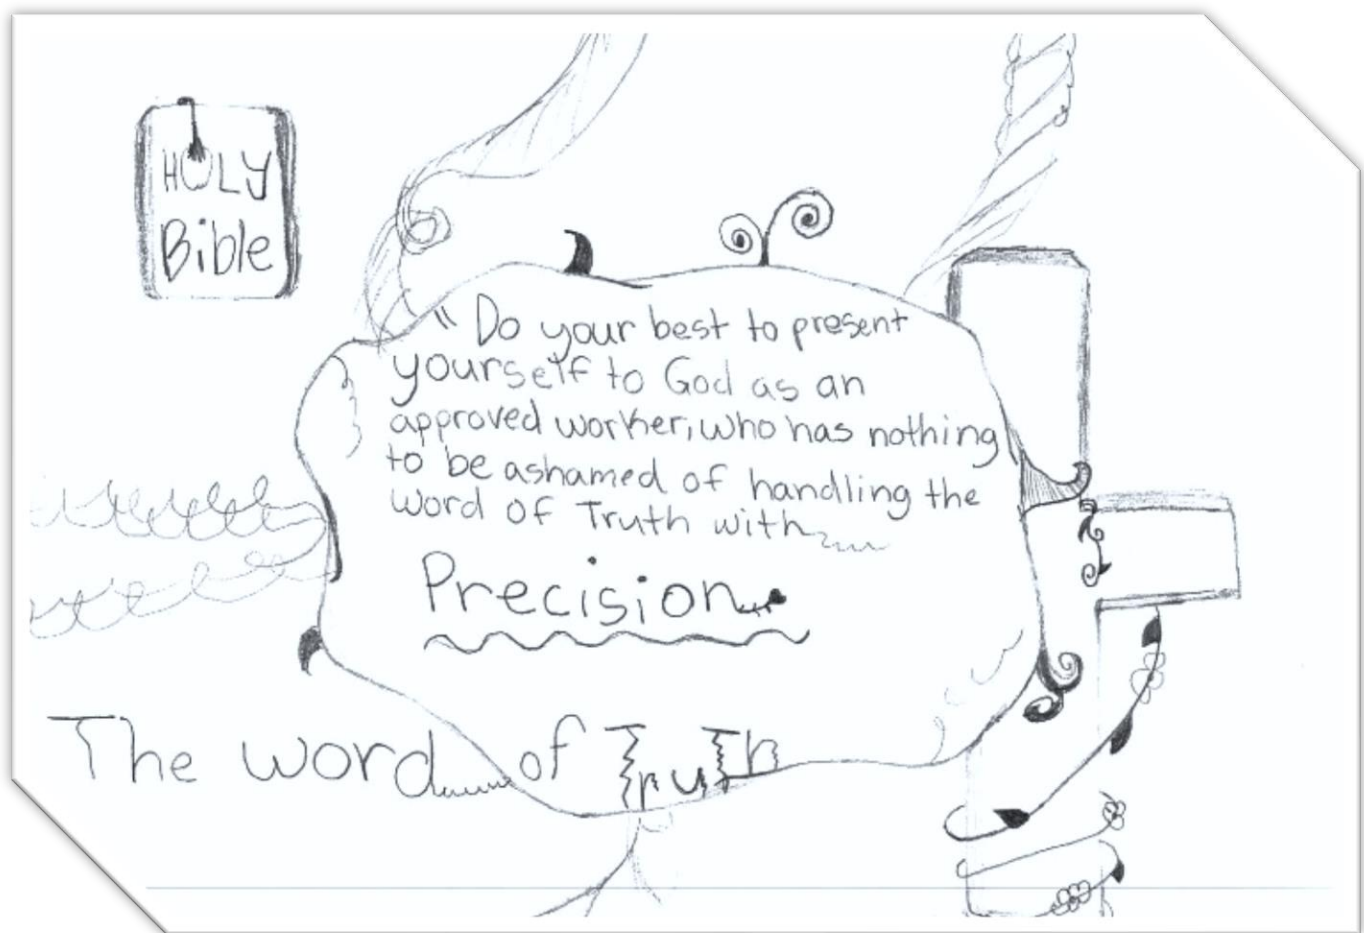 HOLY
Bible
" Do your best to present
yourself to God as an
approved worker, who has nothing
to be ashamed of handling the
word of Truth with
Precision
The word of Truth